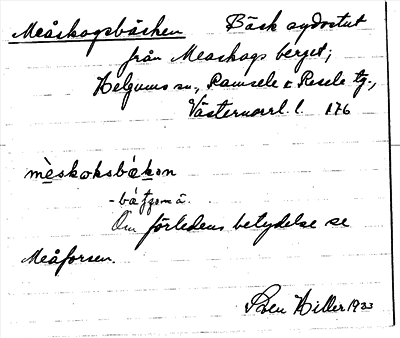 Meåskogsbäcken Bäck sydostut
från Measkogs berget;
Helgums sn., Ramsele o Resele tg.,
Västernorrl. l. 176
mèskoksbɛ́kən
Om förledens betydelse se
Meåforsen.
Sven Hiller 1933